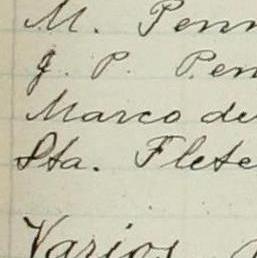 M. Penn
J. P. Pen
Marco de
Sta. Flete
Varios